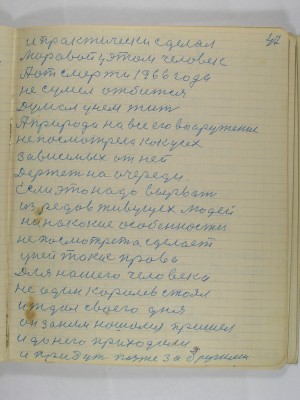 42
и практически сделал
Моравой уэтом человек
А от смерти 1966 года
не сумел отбится
Думал унем жит
А природа на все его вооружение
не посмотрела как у ех
зависимых от ней
Держет на очереди
Если это надо вырват
из редов живущех людей
ни на какие особенности
не посмотрет а сделает
уней такие права
Для нашего человека
не один король стоял
и ждал своего дня
он за ним нашолся пришел
и до него приходили
и придут позже за другими